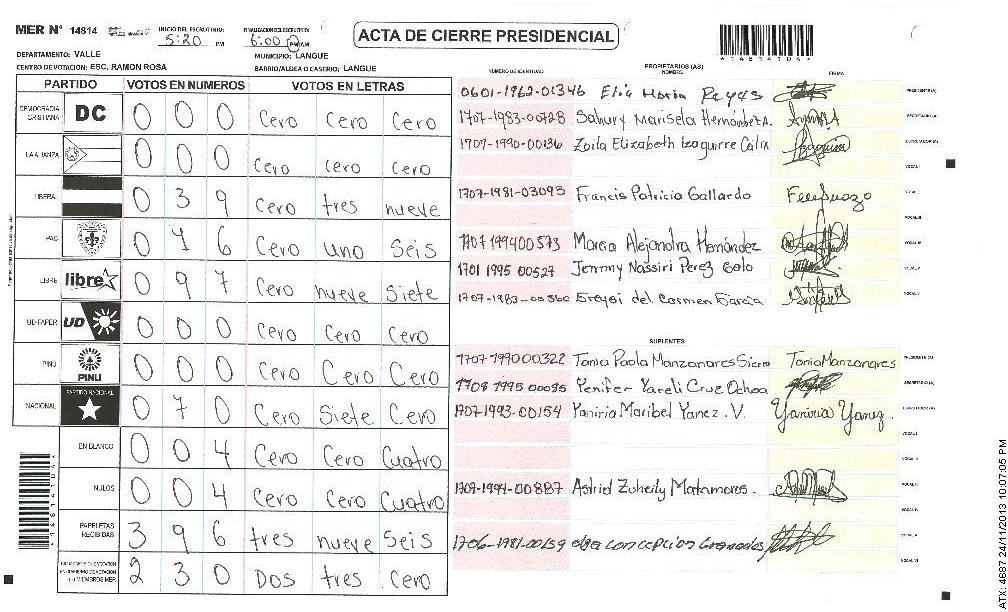 MER Nº 14814
INICIO DEL ESCRUTINIO: 5:20 PM
FINALIZACION DEL ESCRUTINIO: 6:00 PM AM
ACTA DE CIERRE PRESIDENCIAL
*14814104*
DEPARTAMENTO: VALLE
MUNICIPIO: LANGUE
CENTRO DE VOTACION: ESC. RAMON ROSA
BARRIO/ALDEA O CASERIO: LANGUE
PARTIDO VOTOS EN NUMEROS VOTOS EN LETRAS
DEMOCRACIA CRISTIANA DC 0 0 0 Cero Cero Cero
LA ALIANZA 0 0 0 Cero Cero Cero
LIBERAL 0 3 9 Cero tres nueve
PAC 0 1 6 Cero uno Seis
LIBRE libre 0 9 7 Cero nueve Siete
UD-FAPER UD 0 0 0 Cero Cero Cero
PINU PINU 0 0 0 Cero Cero Cero
NACIONAL PARTIDO NACIONAL 0 7 0 Cero Siete Cero
EN BLANCO 0 0 4 Cero Cero Cuatro
NULOS 0 0 4 Cero Cero Cuatro
PAPELETAS RECIBIDAS 3 9 6 tres nueve Seis
2 3 0 Dos tres Cero
NUMERO DE IDENTIDAD PROPIETARIOS (AS) NOMBRE FIRMA
0601-1962-01346 Elia Maria Reyes PRESIDENTE (A)
1707-1983-00728 Sahury Marisela Hernández A. SECRETARIO (A)
1707-1990-00136 Zoila Elizabeth Izaguirre Calix ESCRUTADOR (A)
VOCAL I
1707-1981-03093 Francis Patricio Gallardo VOCAL II
VOCAL III
1707 199400573 Marcia Alejandra Hernández VOCAL IV
1701 1995 00527 Jemmy Nassiri Perez Soto VOCAL V
1707-1983-00360 Greysi del Carmen Garcia
SUPLENTES
1707-199000322 Tania Paola Manzanares Sierra Tania Manzanares PRESIDENTE (A)
1708 1995 00095 Yenifer Yareli Cruz Ochoa SECRETARIO (A)
1707-1993-00154 Yaniria Maribel Yanez . V. Yaniria Yanez. ESCRUTADOR (A)
VOCAL I
VOCAL II
1709-1994-00887 Astrid Zuheily Matamoros. VOCAL III
VOCAL IV
1706-1981-00159 olga concepcion Granados VOCAL V
VOCAL VI
*14814104*
ATX: 4687 24/11/2013 10:07:05 PM